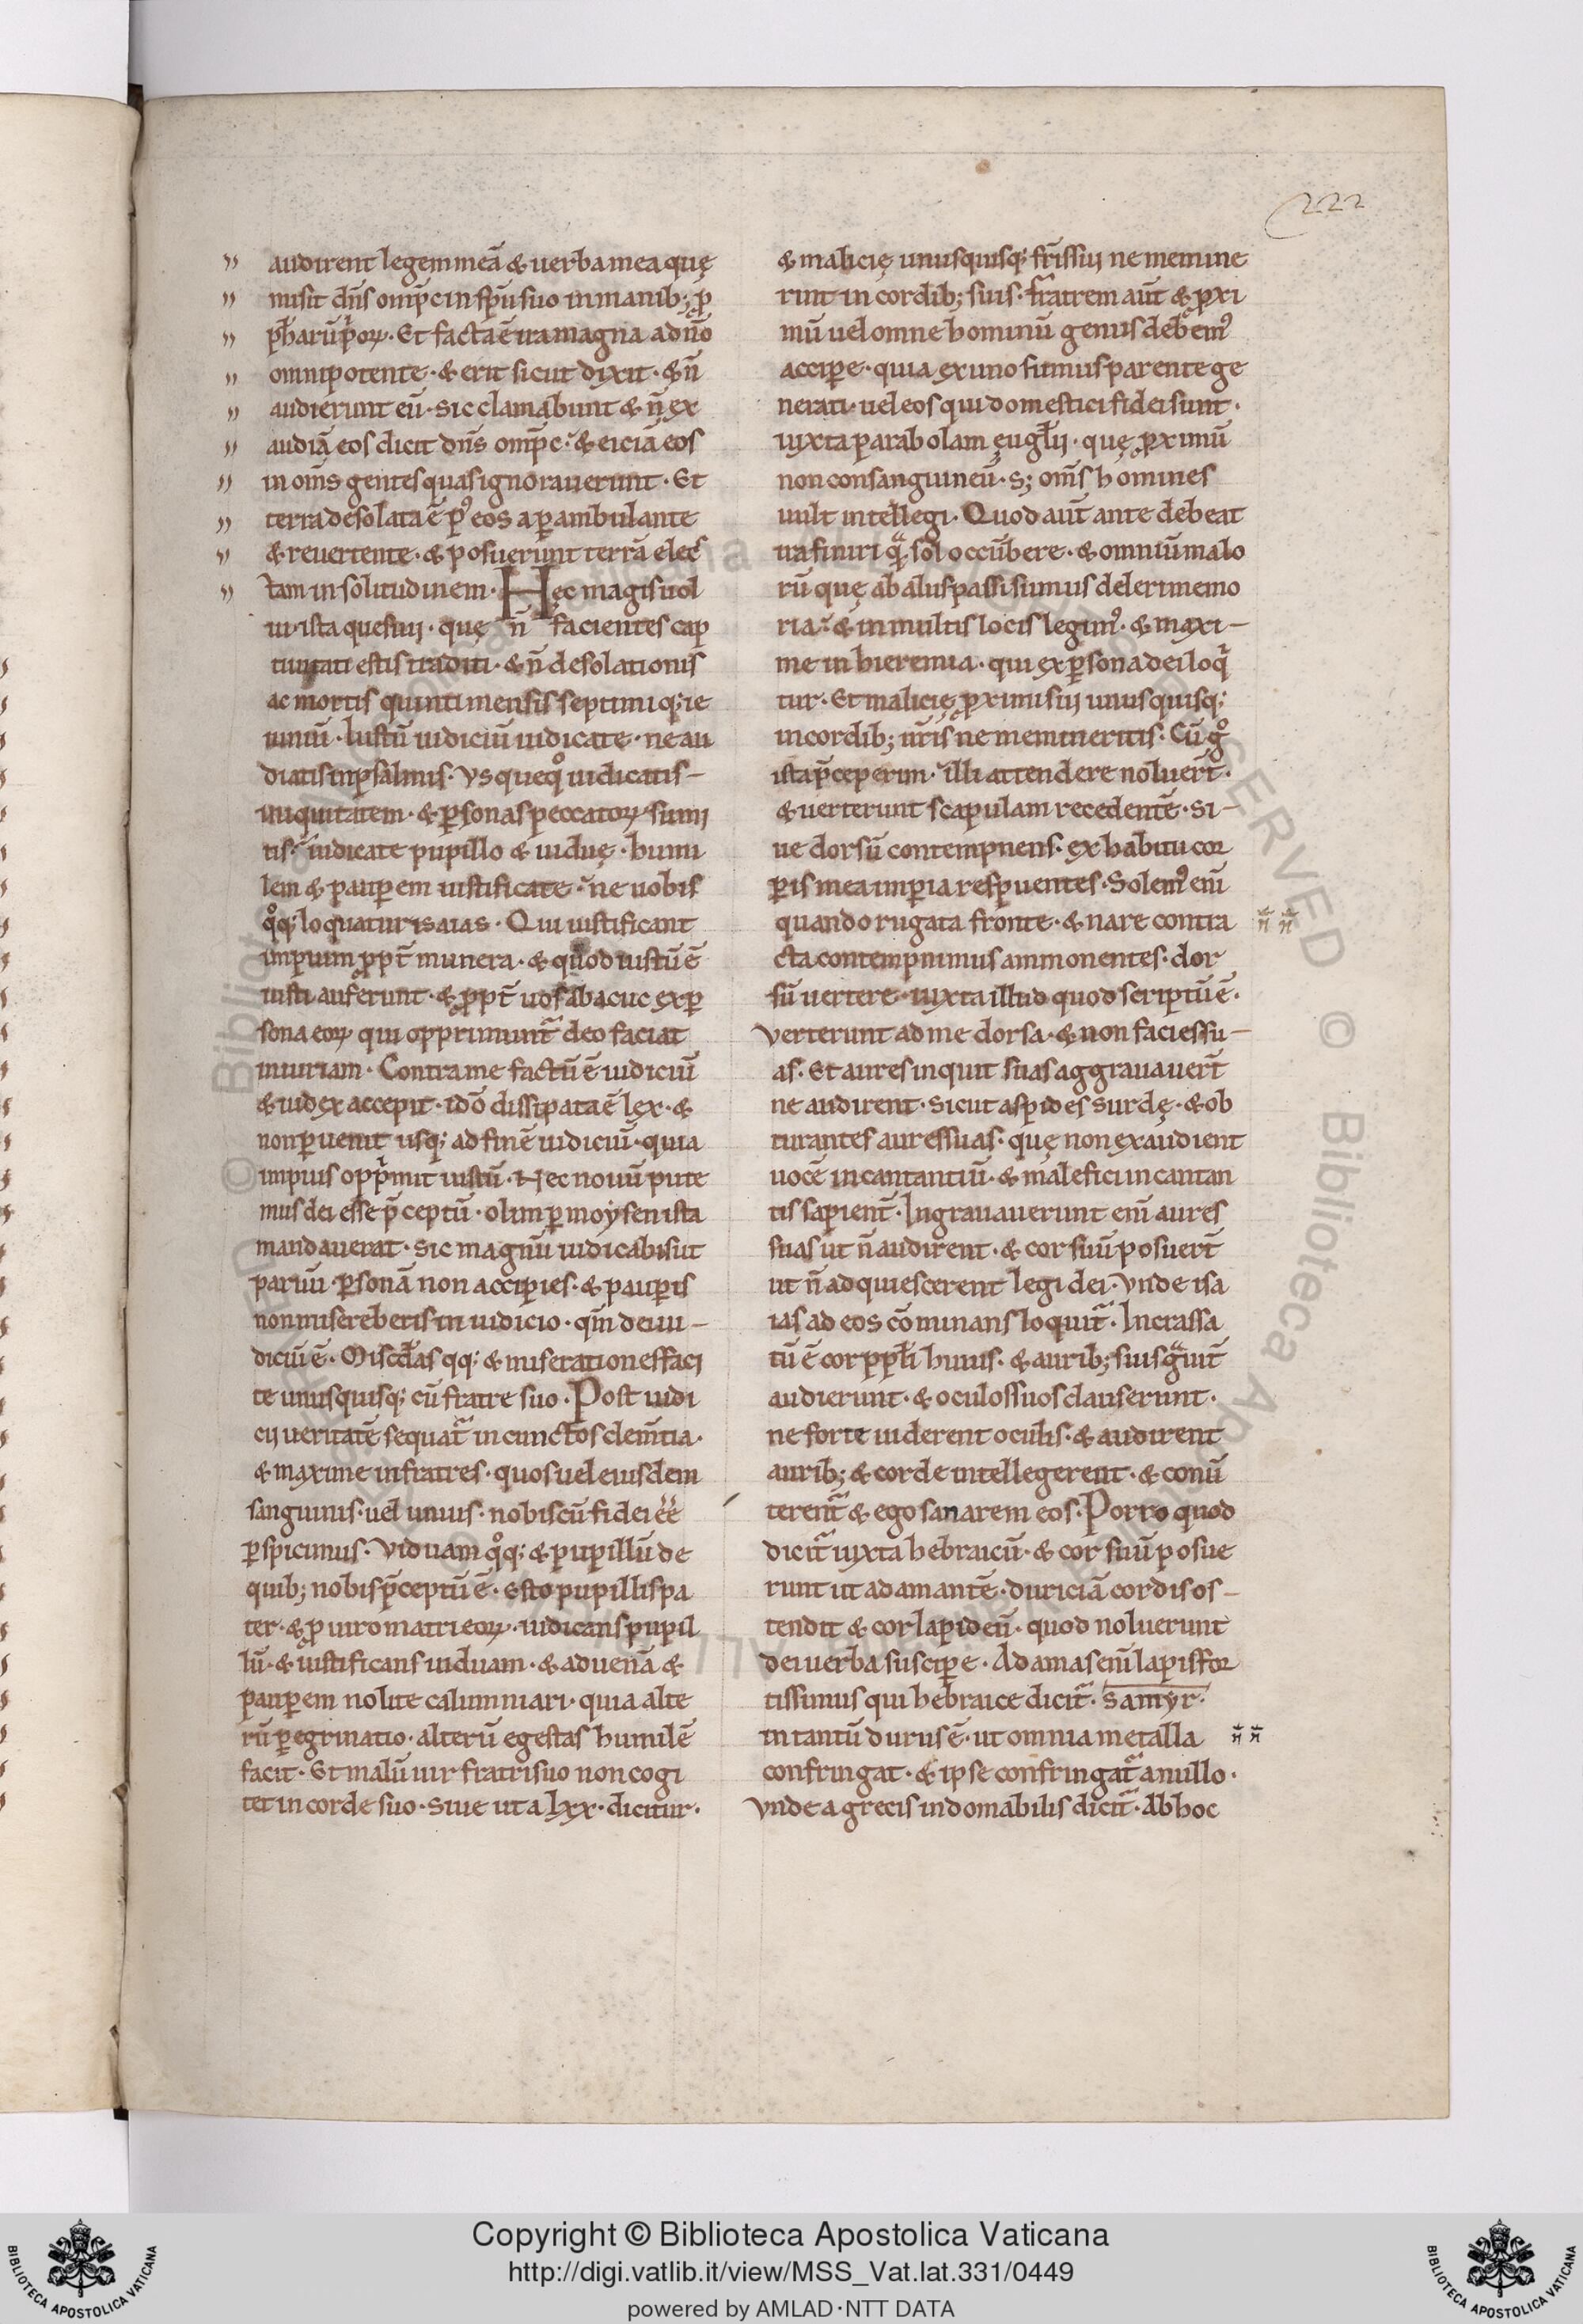 222
audirent legem meā & uerba mea quę
misit dn̄s omp̄c in sp̄u suo in manib; ꝓ
ph̄arū p̄oꝝ · Et facta ē ira magna a dn̄o
omnipotente · & erit sicut dixit · & n̄
audierunt eū · sic clamabunt & n̄ ex
audiā eos dicit dn̄s omp̄c · & eiciā eos
in om̄s gentes quas ignorauerunt · Et
terra desolata ē p᷒ eos a ꝑambulante
& reuertente · & posuerunt terrā elec
tam in solitudinem · Hęc magis uol
ui · ista quesiui · quę n̄ facientes cap
tiuitati estis traditi · & n̄ desolationis
ac mortis quinti mensis septimiq; ie
iuniū · Iustū iudiciū iudicate · ne au
diatis in psalmis · Vsquequo iudicatis –
iniquitatem · & ꝑsonas peccatoꝝ sumi
tis · iudicate pupillo & uiduę · humi
lem & pauꝑem iustificate · ne uobis
qͦq; loquatur isaias · Qui iustificant
impium ꝓpt̄ munera · & quod iustū ē
iusti auferunt · & ꝓpt̄ uos abacuc ex ꝑ
sona eoꝝ qui opprimunt̄ deo faciat
iniuriam · Contra me factū ē iudiciū
& iudex accepit · idō dissipata ē lex · &
non ꝑuenit usq; ad finē iudiciū · quia
impius opp̍mit iustū · Nec nouū pute
mus dei esse p̄ceptū · olim ꝑ moysen ista
mandauerat · Sic magnū iudicabis ut
paruū · ꝑsonā non accipies · & pauꝑis
non misereberis in iudicio · qm̄ dei iu –
diciū ē · Misc̄dias qq; & miserationes faci
te unusquisq; cū fratre suo · Post iudi
cii ueritatē sequat̄ in cunctos clem̄tia ·
& maxime in fratres · quos uel eiusdem
sanguinis · uel unius · nobiscū fidei ēē
ꝑspicimus · Viduam qͦq; & pupillū de
quib; nobis p̄ceptū ē · Esto pupillis pa
ter · & ꝓ uiro matri eoꝝ · iudicans pupil
lū · & iustificans uiduam · & aduenā &
pauꝑem nolite calumniari · quia alte
rū ꝑegrinatio · alterū egestas humilē
facit · Et malū uir fratri suo non cogi
tet in corde suo · siue ut a lxx · dicitur ·
& malicię unusquisq; fr̄is sui ne memine
rint in cordib; suis · fratrem aut̄ & ꝓxi
mū uel omne hominū genus debem᷒
acciꝑe · quia ex uno sumus parente ge
nerati · uel eos qui domestici fidei sunt ·
iuxta parabolam ęugl̄ii · quę ꝓximū
non consanguineū · s; om̄s homines
uult intellegi · Quod aut̄ ante debeat
ira finiri q̄ sol occūbere · & omniū malo
rū quę ab aliis passi sumus deleri memo
ria · & in multis locis legim᷒ · & maxi –
me in hieremia · qui ex ꝑsona dei loqͥ
tur · Et malicię ꝓximi sui unusquisq;
in cordib; ur̄is ne memineritis · Cū gͦ
ista p̄ceperim · illi attendere noluer̄t ·
& uerterunt scapulam recedentē · si –
ue dorsū contempnens · ex habitu cor
ꝑis mea imꝑia respuentes · Solem᷒ enī
quando rugata fronte · & nare contra
cta contempnimus ammonentes · dor
sū uertere · iuxta illud quod scriptū ē ·
Verterunt ad me dorsa · & non facies su –
as · Et aures inquit suas aggrauauer̄t
ne audirent · sicut aspides surdę · & ob
turantes aures suas · quę non exaudient
uocē incantantiū · & malefici incantan
tis sapient̄ · Ingrauauerunt enī aures
suas ut n̄ audirent · & cor suū posuer̄t
ut n̄ adquiescerent legi dei · Vnde isa
ias ad eos cōminans loquit̄ · Incrassa
tū ē cor ppl̄i huius · & aurib; suis gͣuit̄
audierunt · & oculos suos clauserunt ·
ne forte uiderent oculis · & audirent
aurib; & corde intellegerent · & conū
terent̄ & ego sanarem eos · Porro quod
dicit̄ iuxta hebraicū · & cor suū posue
runt ut adamantē · duriciā cordis os –
tendit & cor lapideū · quod noluerunt
dei uerba susciꝑe · Adamas enī lapis for
tissimus qui hebraice dicit̄ · samyr ·
in tantū durus ē · ut omnia metalla
confringat · & ipse confringat̄ a nullo ·
Vnde a grecis indomabilis dicit̄ · Ab hoc
Copyright © Biblioteca Apostolica Vaticana
http://digi.vatlib.it/view/MSS_Vat.lat.331/0449
powered by AMLAD·NTT DATA
BIBLIOTECA APOSTOLICA VATICANA
BIBLIOTECA APOSTOLICA VATICANA